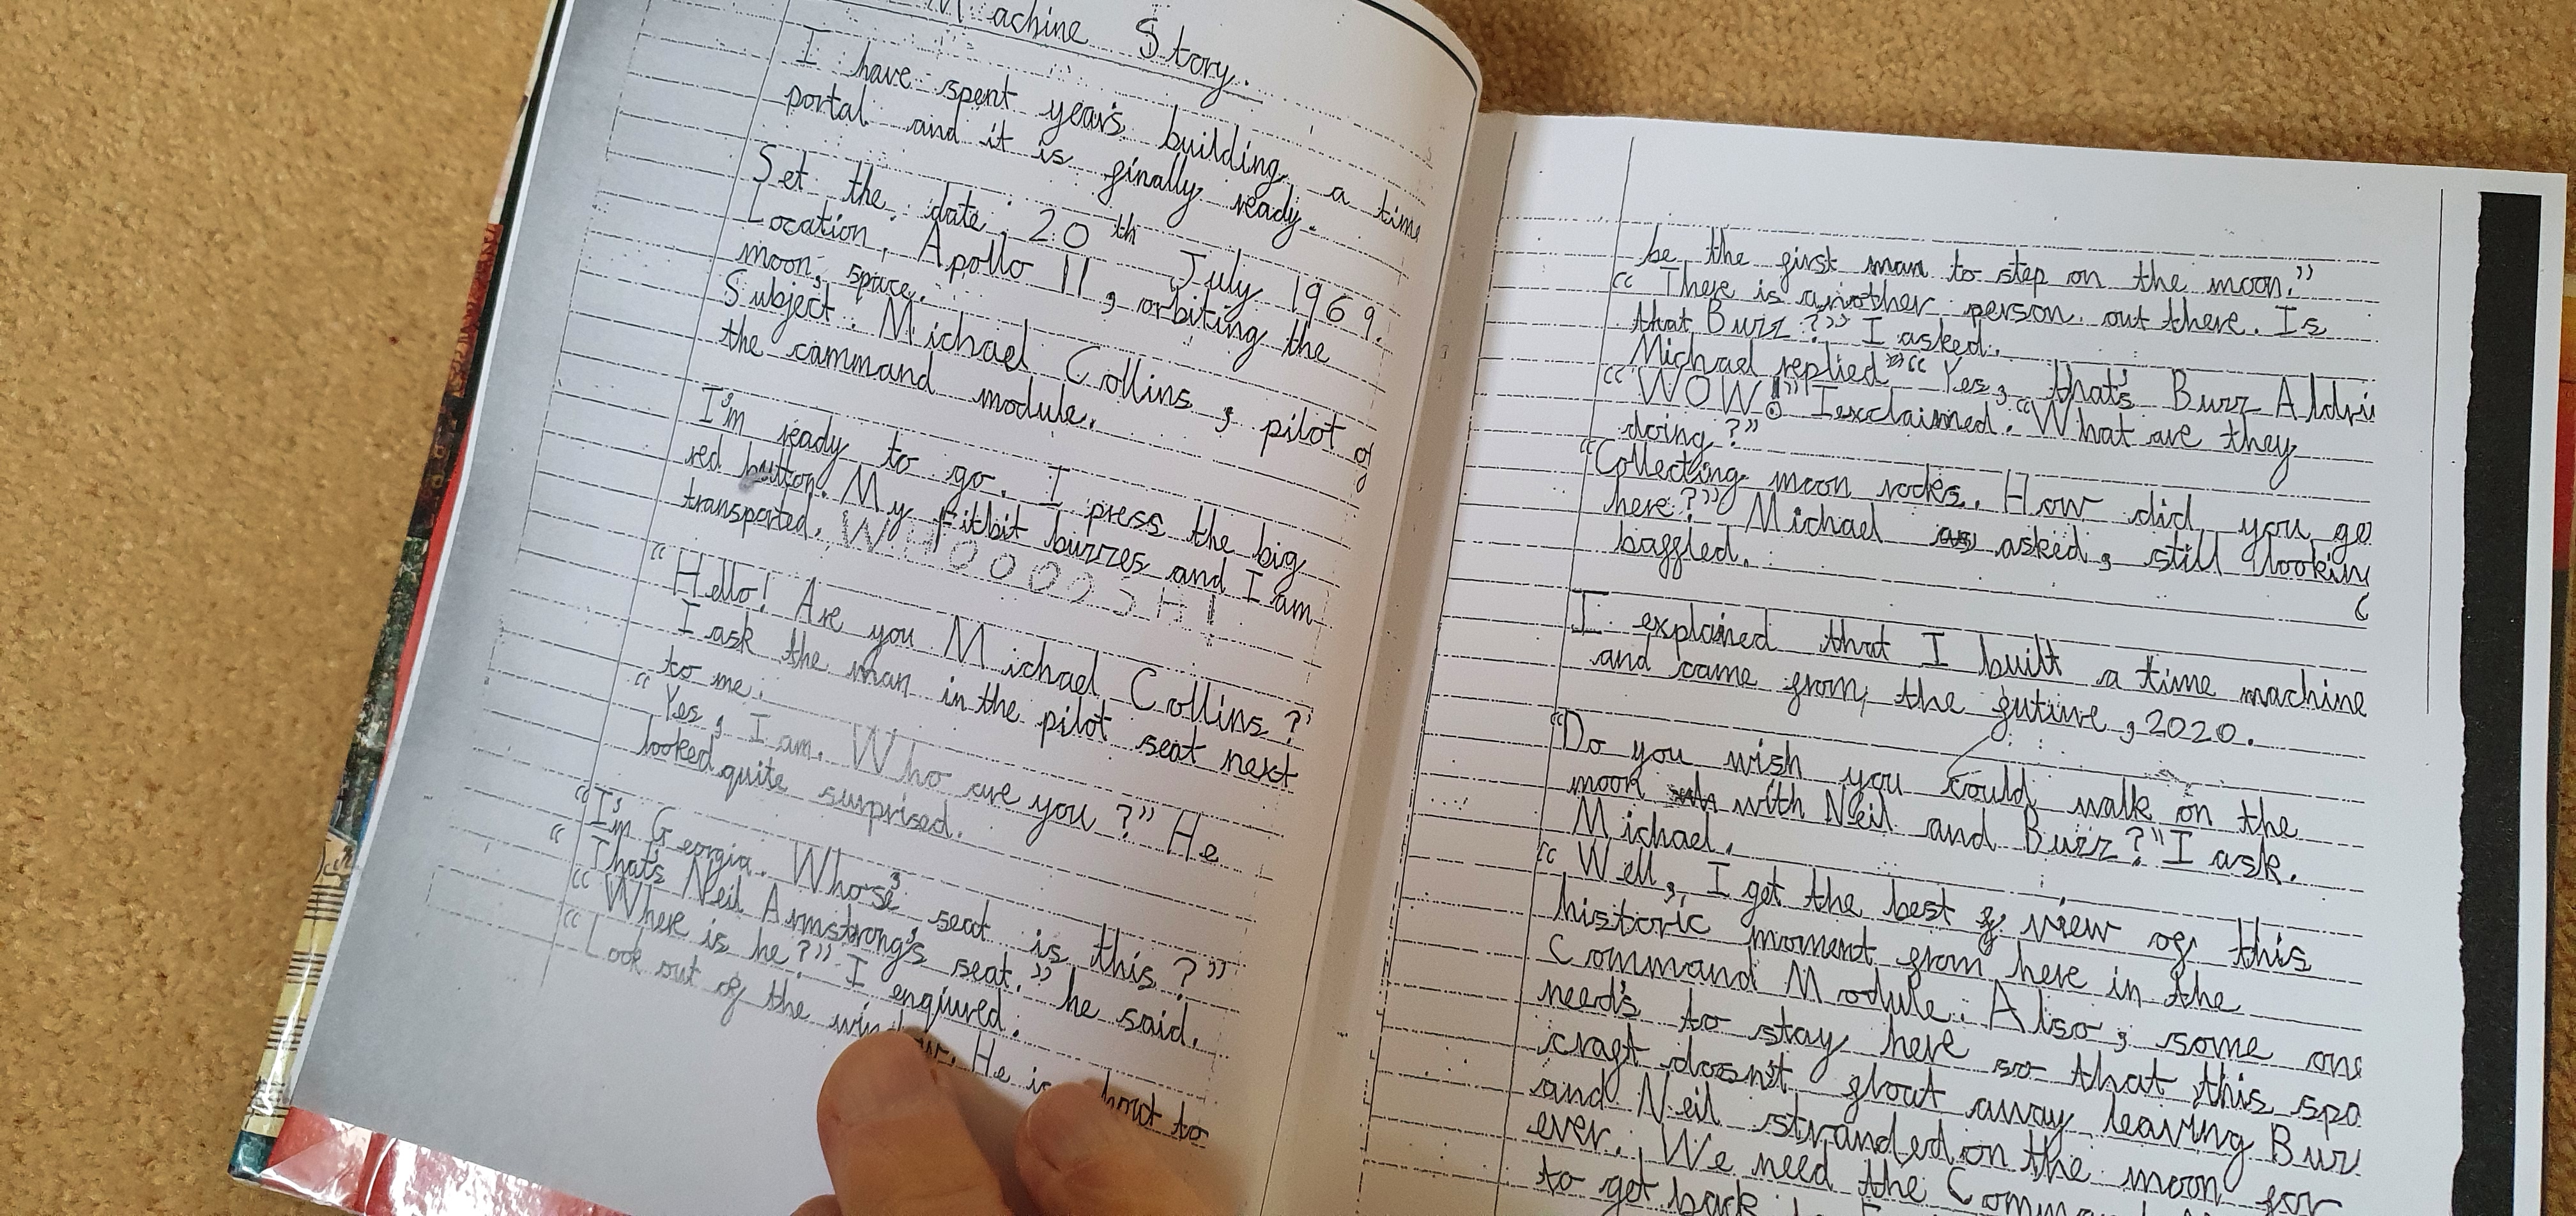 Machine Story.
I have spent year's building a time
portal and it is finally ready.
Set the date: 20th July 1969.
Location, Apollo 11, orbiting the
moon, space.
Subject: Michael Collins, pilot of
the cammand module.
I'm ready to go. I press the big
red button. My Fitbit buzzes and I am
transported. WHOOOOOSH!
"Hello! Are you Michael Collins?"
I ask the man in the pilot seat next
to me.
"Yes, I am. Who are you?" He
looked quite surprised.
"I'm Georgia. Whose' seat is this?"
"That's Neil Armstrong's seat." he said.
"Where is he?" I enqiured.
"Look out of the window. He is about to
be the first man to step on the moon."
"There is another person out there. Is
that Buzz?" I asked.
Michael replied "Yes, that's Buzz Aldri
"WOW!" I exclaimed. "What are they
doing?"
"Collecting moon rocks. How did you ge
here?" Michael as asked, still lookin
baffled.
I explained that I built a time machine
and came from the future, 2020.
"Do you wish you could walk on the
moon with Neil and Buzz?" I ask.
Michael.
"Well, I get the best view of this
historic moment from here in the
Command Module. Also, some one
need's to stay here so that this spa
craft doesn't float away leaving Buz
and Neil stranded on the moon for
ever. We need the Comman
to get back